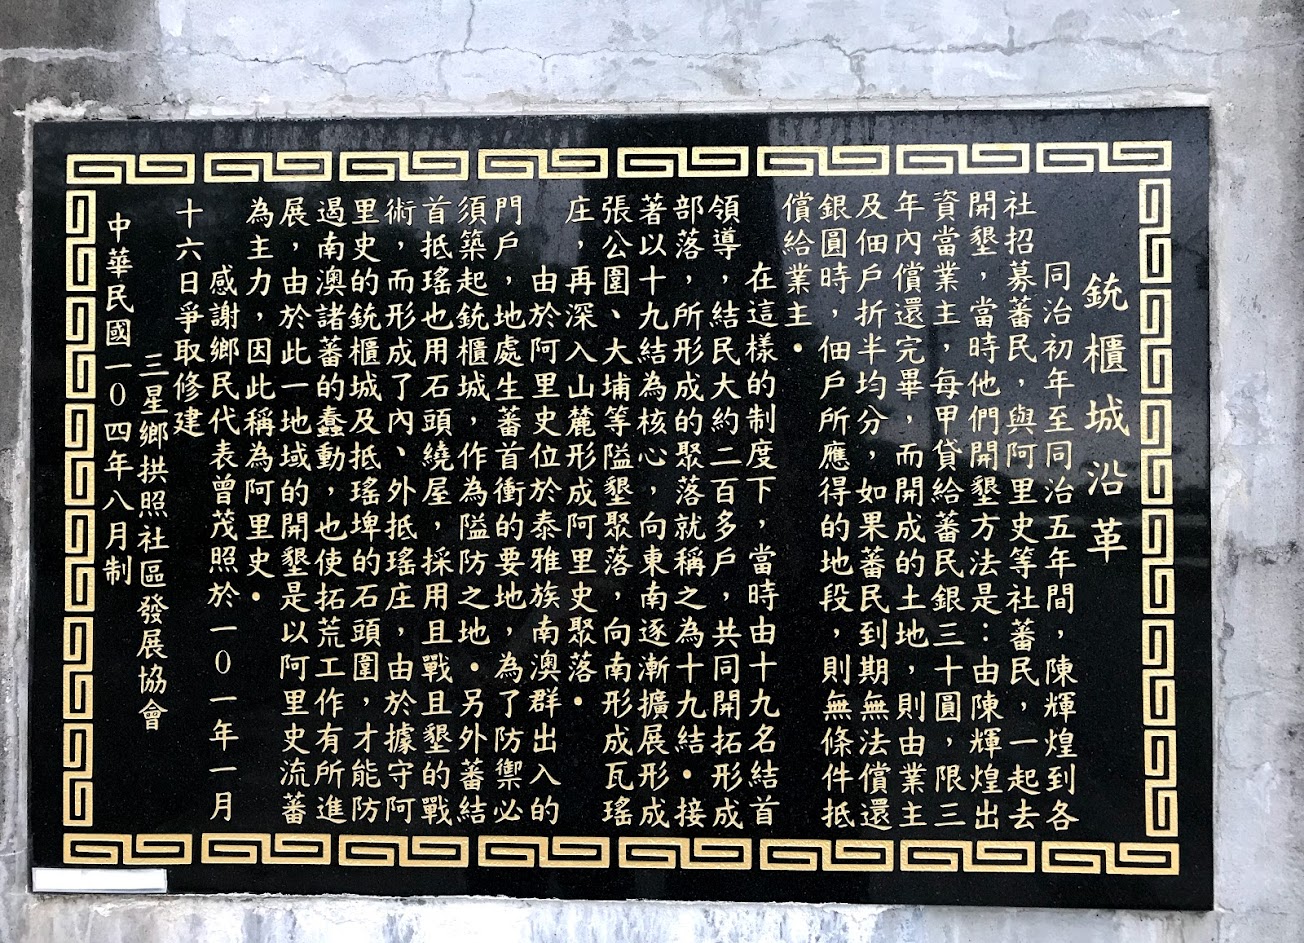 銃櫃城沿革
同治初年至同治五年間，陳輝煌到各
社招募蕃民，與阿里史等社蕃民，一起去
開墾，當時他們開墾方法是：由陳輝煌出
資當業主，每甲貸給蕃民銀三十圓，限三
年內償還完畢，而開成的土地，則由業主
及佃戶折半均分，如果蕃民到期無法償還
銀圓時，佃戶所應得的地段，則無條件抵
償給業主。
在這樣的制度下，當時由十九名結首
領導，結民大約二百多戶，共同開拓形成
部落，所形成的聚落就稱之為十九結。接
著以十九結為核心，向東南逐漸擴展形成
張公圍、大埔等隘墾聚落，向南形成瓦瑤
庄，再深入山麓形成阿里史聚落。
由於阿里史位於泰雅族南澳群出入的
門戶，地處生蕃首衝的要地，為了防禦必
須築起銃櫃城，作為隘防之地。另外蕃結
首抵瑤也用石頭繞屋，採用且戰且墾的戰
術，而形成了內、外抵瑤庄，由於據守阿
里史的銃櫃城及抵瑤埤的石頭圍，才能防
遏南澳諸蕃的蠢動，也使拓荒工作有所進
展，由於此一地域的開墾是以阿里史流蕃
為主力，因此稱為阿里史。
感謝鄉民代表曾茂照於一0一年一月
十六日爭取修建
三星鄉拱照社區發展協會
中華民國一0四年八月制